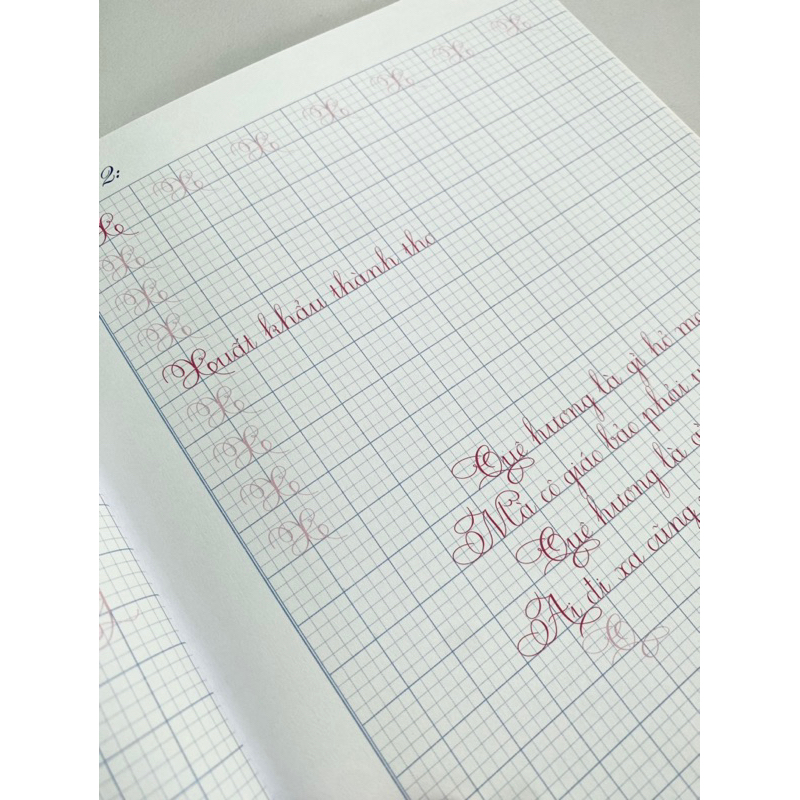 2:
X X X X X X
X
X
X
X
Xuất khẩu thành thơ
X
X
X
X
Quê hương là gì hở mẹ
Mà cô giáo bảo phải
Quê hương là gì
Ai đi xa cũng